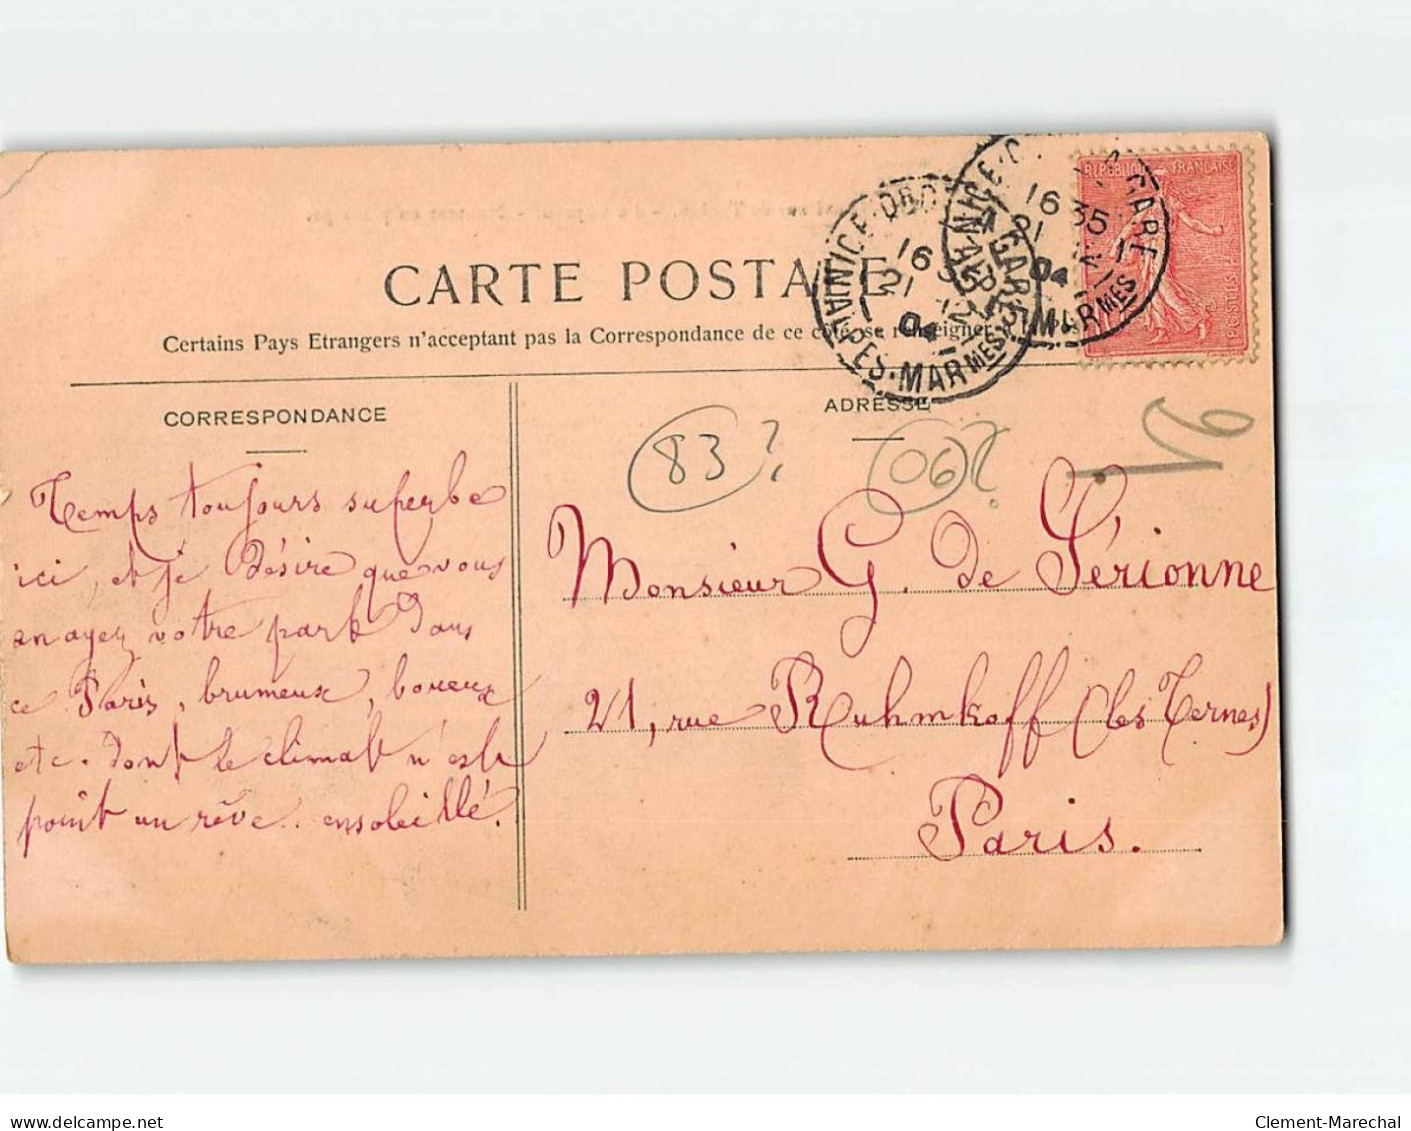 CARTE POSTALE
Certains Pays Etrangers n'acceptant pas la Correspondance de ce côté, se renseigner à la Poste
RÉPUBLIQUE FRANÇAISE
POSTES
NICE
GARE
16 35
21 12
04
ALPES-MARMES
NICE
GARE
16 35
21 12
04
MARMES
CORRESPONDANCE
Temps toujours superbe
ici, et je désire que vous
en ayez votre part dans
ce Paris, brumeux, boueux
etc. dont le climat n'est
point un rêve.. ensoleillé.
ADRESSE
83?
06?
Monsieur G. de Sérionne
21, rue Ruhmkoff (les Ternes)
Paris.
www.delcampe.net
Clement-Marechal